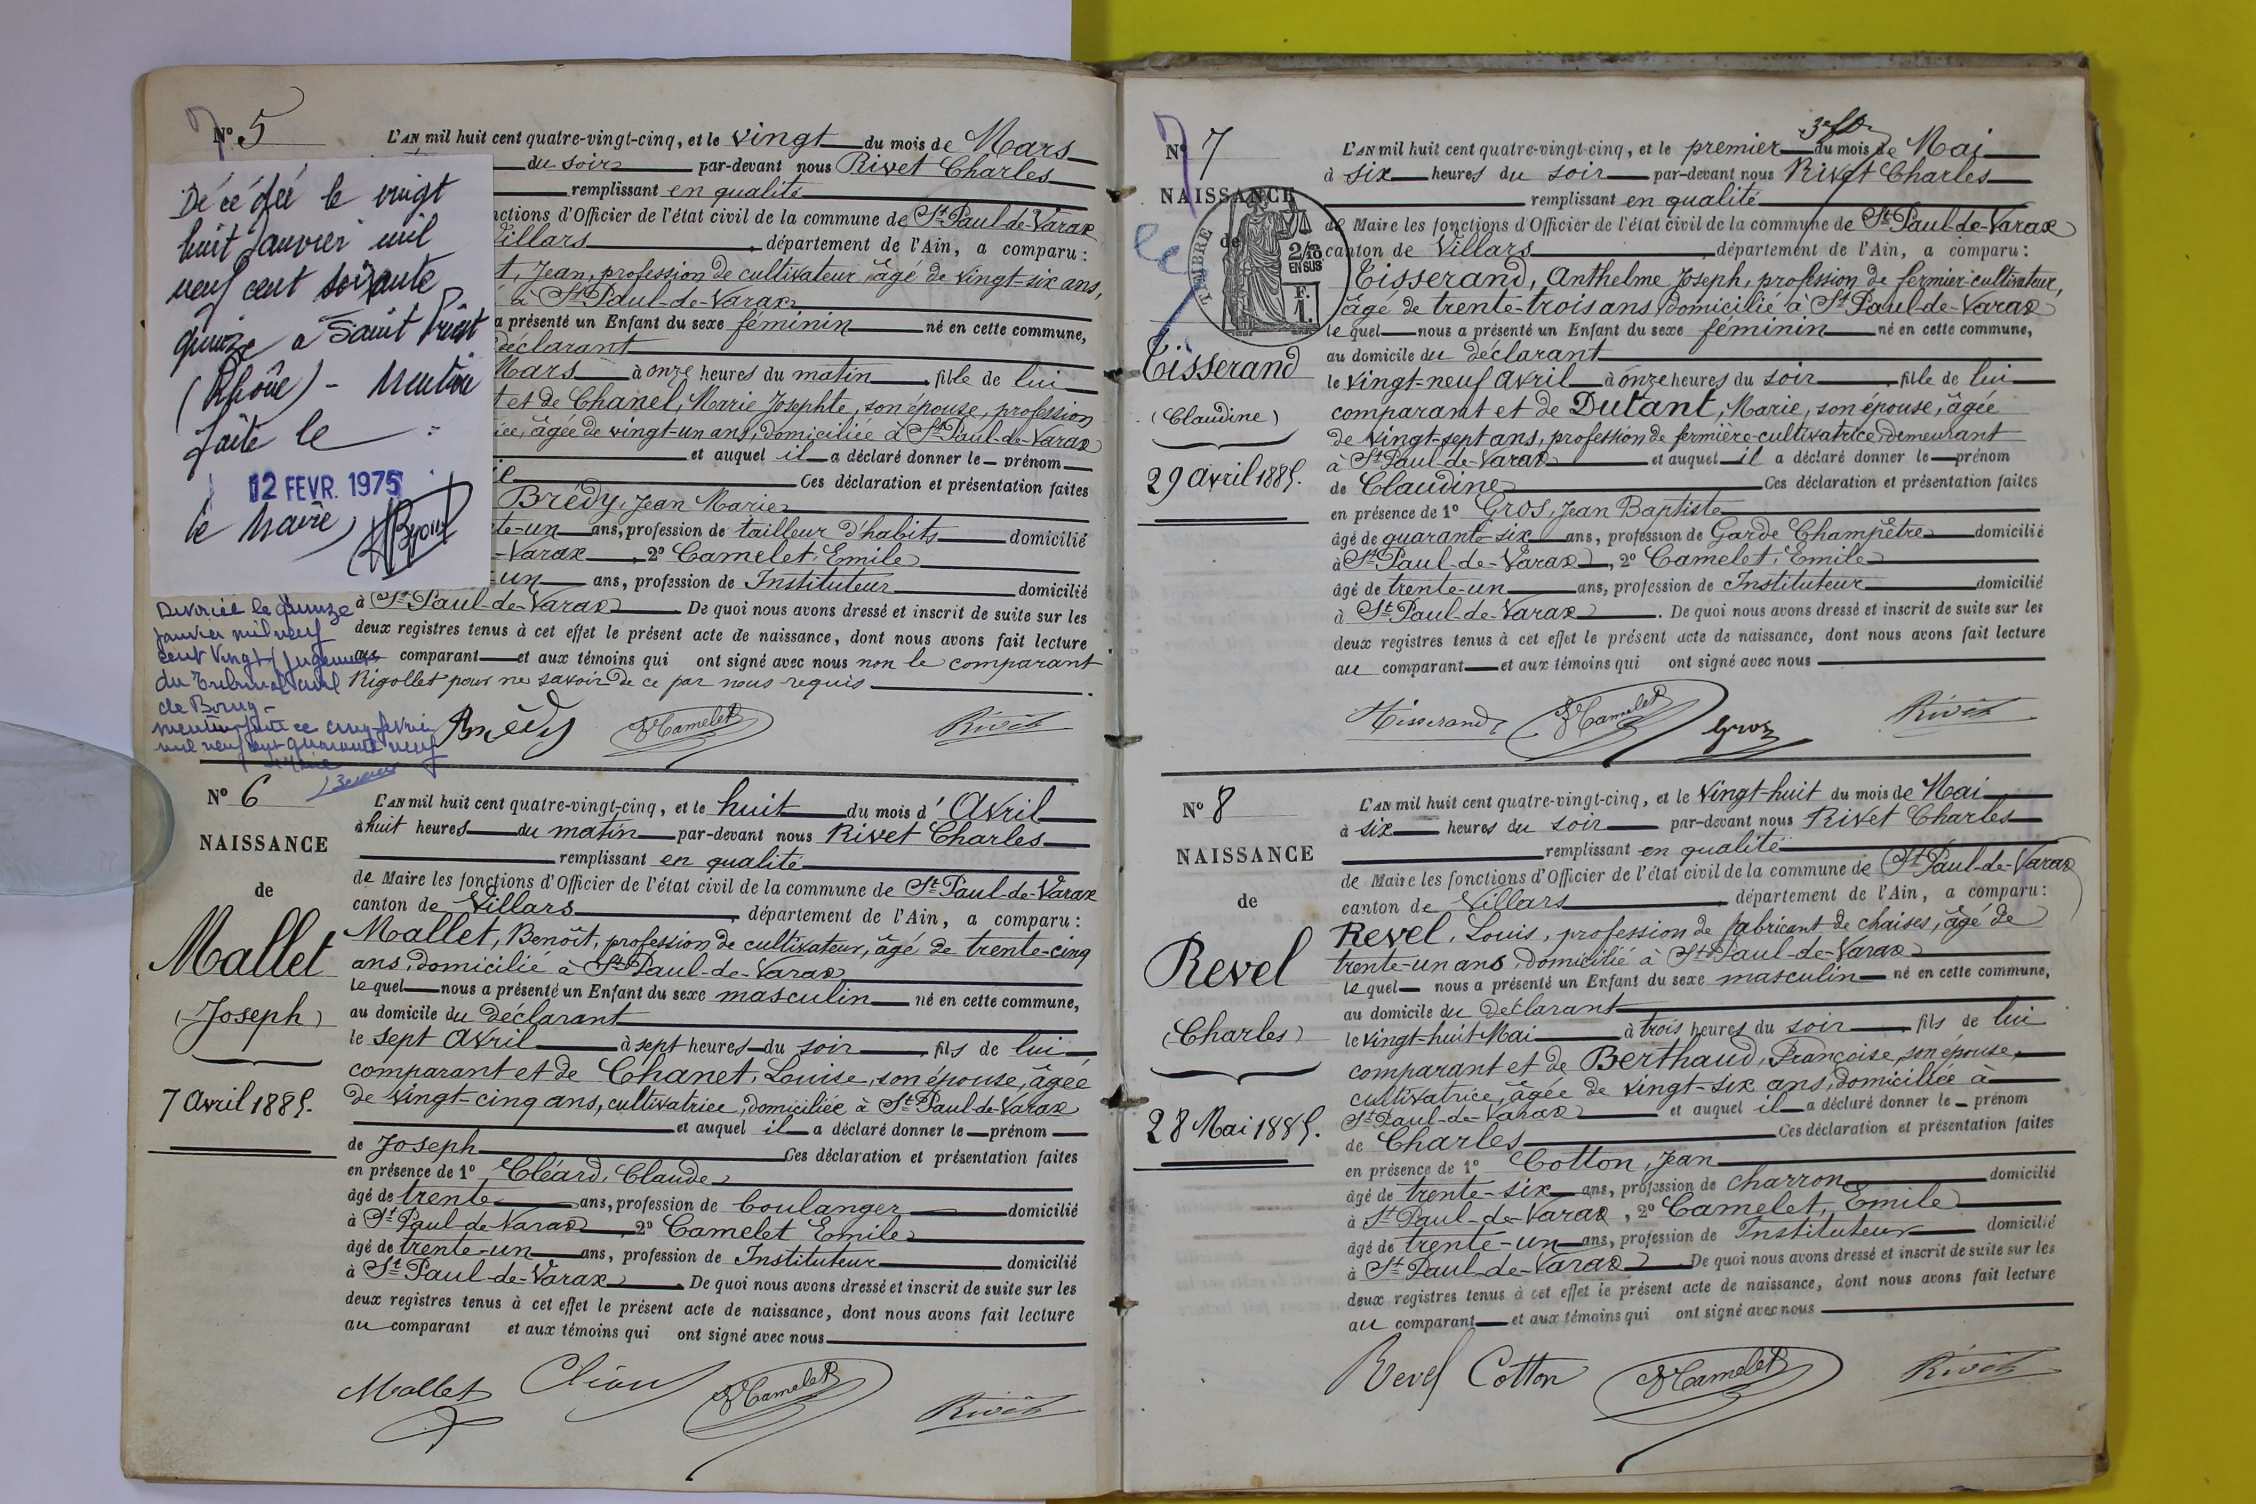 Nº 5
L'AN mil huit cent quatre-vingt-cinq, et le vingt du mois de Mars
du soir par-devant nous Rivet Charles
remplissant en qualité
nctions d'Officier de l'état civil de la commune de St Paul-de-Varax
Villars, département de l'Ain, a comparu:
t, Jean, profession de cultivateur, âgé de vingt-six ans,
à St Paul-de-Varax
a présenté un Enfant du sexe féminin né en cette commune,
déclarant
Mars à onze heures du matin, fille de lui
t et de Chanel, Marie Josephte, son épouse, profession
ée, âgée de vingt-un ans, domiciliée à St Paul-de-Varax
et auquel il a déclaré donner le prénom
ie Ces déclaration et présentation faites
Brédy, Jean Marie
te-un ans, profession de tailleur d'habits domicilié
-Varax, 2º Camelet, Emile
-un ans, profession de Instituteur domicilié
à St Paul-de-Varax. De quoi nous avons dressé et inscrit de suite sur les
deux registres tenus à cet effet le présent acte de naissance, dont nous avons fait lecture
au comparant et aux témoins qui ont signé avec nous non le comparant
Rigollet pour ne savoir de ce par nous requis
Brédy Camelet Rivet
Décédée le vingt
huit Janvier mil
neuf cent soixante
quinze à Saint Priest
(Rhône) - Mention
faite le
12 FEVR. 1975
le Maire,
Divorcée le quinze
janvier mil neuf
cent vingt (jugement
du Tribunal civil
de Bourg -
mention faite ce cinq février
mil neuf cent quarante neuf
Nº 6
NAISSANCE
de
Mallet
(Joseph)
7 Avril 1885.
L'AN mil huit cent quatre-vingt-cinq, et le huit du mois d'Avril
à huit heures du matin par-devant nous Rivet Charles
remplissant en qualité
de Maire les fonctions d'Officier de l'état civil de la commune de St Paul-de-Varax
canton de Villars, département de l'Ain, a comparu:
Mallet, Benoît, profession de cultivateur, âgé de trente-cinq
ans, domicilié à St Paul-de-Varax
lequel nous a présenté un Enfant du sexe masculin né en cette commune,
au domicile du déclarant
le sept Avril à sept heures du soir, fils de lui
comparant et de Chanet, Louise, son épouse, âgée
de vingt-cinq ans, cultivatrice, domiciliée à St Paul-de-Varax
et auquel il a déclaré donner le prénom
de Joseph Ces déclaration et présentation faites
en présence de 1º Cléard, Claude
âgé de trente ans, profession de boulanger domicilié
à St Paul-de-Varax, 2º Camelet Emile
âgé de trente-un ans, profession de Instituteur domicilié
à St Paul-de-Varax. De quoi nous avons dressé et inscrit de suite sur les
deux registres tenus à cet effet le présent acte de naissance, dont nous avons fait lecture
au comparant et aux témoins qui ont signé avec nous
Mallet Camelet Rivet
Nº 7
NAISSANCE
de
TIMBRE
2/10
EN SUS
F.
1.
Tisserand
(Claudine)
29 Avril 1885.
L'AN mil huit cent quatre-vingt-cinq, et le premier du mois de Mai
à six heures du soir par-devant nous Rivet Charles
remplissant en qualité
de Maire les fonctions d'Officier de l'état civil de la commune de St Paul-de-Varax
canton de Villars, département de l'Ain, a comparu:
Tisserand, Anthelme Joseph, profession de fermier-cultivateur,
âgé de trente-trois ans, domicilié à St Paul-de-Varax
lequel nous a présenté un Enfant du sexe féminin né en cette commune,
au domicile du déclarant
le vingt-neuf Avril à onze heures du soir, fille de lui
comparant et de Dutant, Marie, son épouse, âgée
de vingt-sept ans, profession de fermière-cultivatrice, demeurant
à St Paul-de-Varax et auquel il a déclaré donner le prénom
de Claudine Ces déclaration et présentation faites
en présence de 1º Gros, Jean Baptiste
âgé de quarante-six ans, profession de Garde Champêtre domicilié
à St Paul-de-Varax, 2º Camelet, Emile
âgé de trente-un ans, profession de Instituteur domicilié
à St Paul-de-Varax. De quoi nous avons dressé et inscrit de suite sur les
deux registres tenus à cet effet le présent acte de naissance, dont nous avons fait lecture
au comparant et aux témoins qui ont signé avec nous
Tisserand Camelet Gros Rivet
Nº 8
NAISSANCE
de
Revel
(Charles)
28 Mai 1885.
L'AN mil huit cent quatre-vingt-cinq, et le vingt-huit du mois de Mai
à six heures du soir par-devant nous Rivet Charles
remplissant en qualité
de Maire les fonctions d'Officier de l'état civil de la commune de St Paul-de-Varax
canton de Villars, département de l'Ain, a comparu:
Revel, Louis, profession de fabricant de chaises, âgé de
trente-un ans, domicilié à St Paul-de-Varax
lequel nous a présenté un Enfant du sexe masculin né en cette commune,
au domicile du déclarant
le vingt-huit Mai à trois heures du soir, fils de lui
comparant et de Berthaud, Françoise, son épouse,
cultivatrice, âgée de vingt-six ans, domiciliée à
St Paul-de-Varax et auquel il a déclaré donner le prénom
de Charles Ces déclaration et présentation faites
en présence de 1º Cotton, Jean
âgé de trente-six ans, profession de charron domicilié
à St Paul-de-Varax, 2º Camelet, Emile
âgé de trente-un ans, profession de Instituteur domicilié
à St Paul-de-Varax. De quoi nous avons dressé et inscrit de suite sur les
deux registres tenus à cet effet le présent acte de naissance, dont nous avons fait lecture
au comparant et aux témoins qui ont signé avec nous
Revel Cotton Camelet Rivet